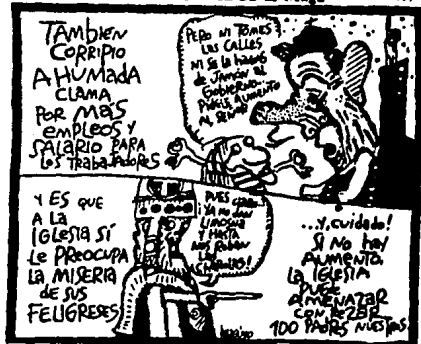 TAMBIEN
CORRIPIO
AHUMADA
CLAMA
POR MAS
EMPLEOS Y
SALARIO PARA
LOS TRABAJADORES
PERO NI TOMES
LAS CALLES
NI SE LA HAGAS
DE JAMÓN AL
GOBIERNO.
AUMENTO
AL SEÑOR
Y ES QUE
A LA
IGLESIA SÍ
LE PREOCUPA
LA MISERIA
DE SUS
FELIGRESES
PUES CLARO..
YA NO DAN
LIMOSNA
Y HASTA
NOS ROBAN
LAS
...Y, cuidado!
SI NO hAY
AUMENTO
LA IGLESIA
PUEDE
AMENAZAR
CON REZAR
100 PADRES NUESTROS